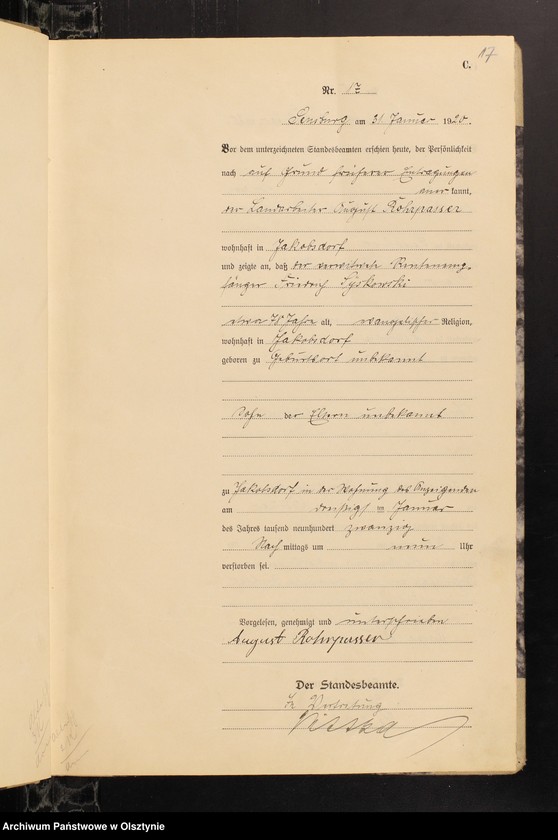 17
C.
Nr. 17
Sensburg am 31. Januar 1920.
Vor dem unterzeichneten Standesbeamten erschien heute, der Persönlichkeit
nach auf Grund früherer Eintragungen
anerkannt,
der Landarbeiter August Rohrpasser
wohnhaft in Jakobsdorf
und zeigte an, daß der verwitwete Rentenemp-
fänger Friedrich
etwa 78 Jahre alt, evangelischer Religion,
wohnhaft in Jakobsdorf
geboren zu Geburtsort unbekannt
Sohn der Eltern unbekannt
zu Jakobsdorf in der Wohnung des Anzeigenden
am dreißigsten Januar
des Jahres tausend neunhundert zwanzig
Nachmittags um neun Uhr
verstorben sei.
Vorgelesen, genehmigt und unterschrieben
August Rohrpasser
Der Standesbeamte.
In Vertretung
Archiwum Państwowe w Olsztynie